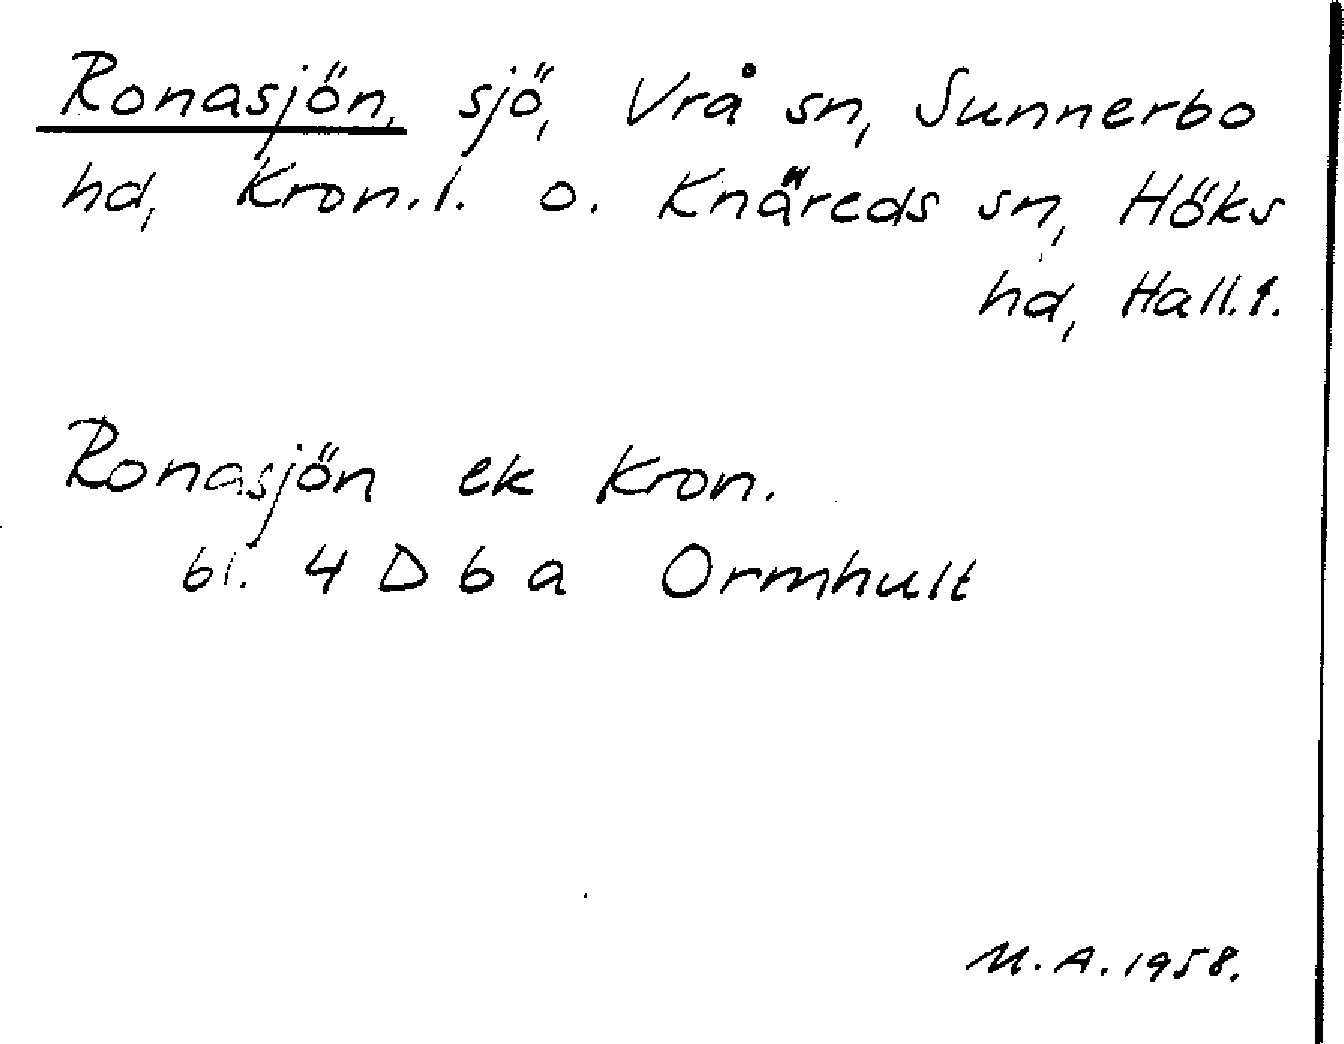 Ronasjön, sjö, Vrå sn, Sunnerbo
hd, Kron.l. o. Knäreds sn, Höks
hd, Hall.l.
Ronasjön ek Kron.
bl. 4 D 6 a Ormhult
M.A. 1958.